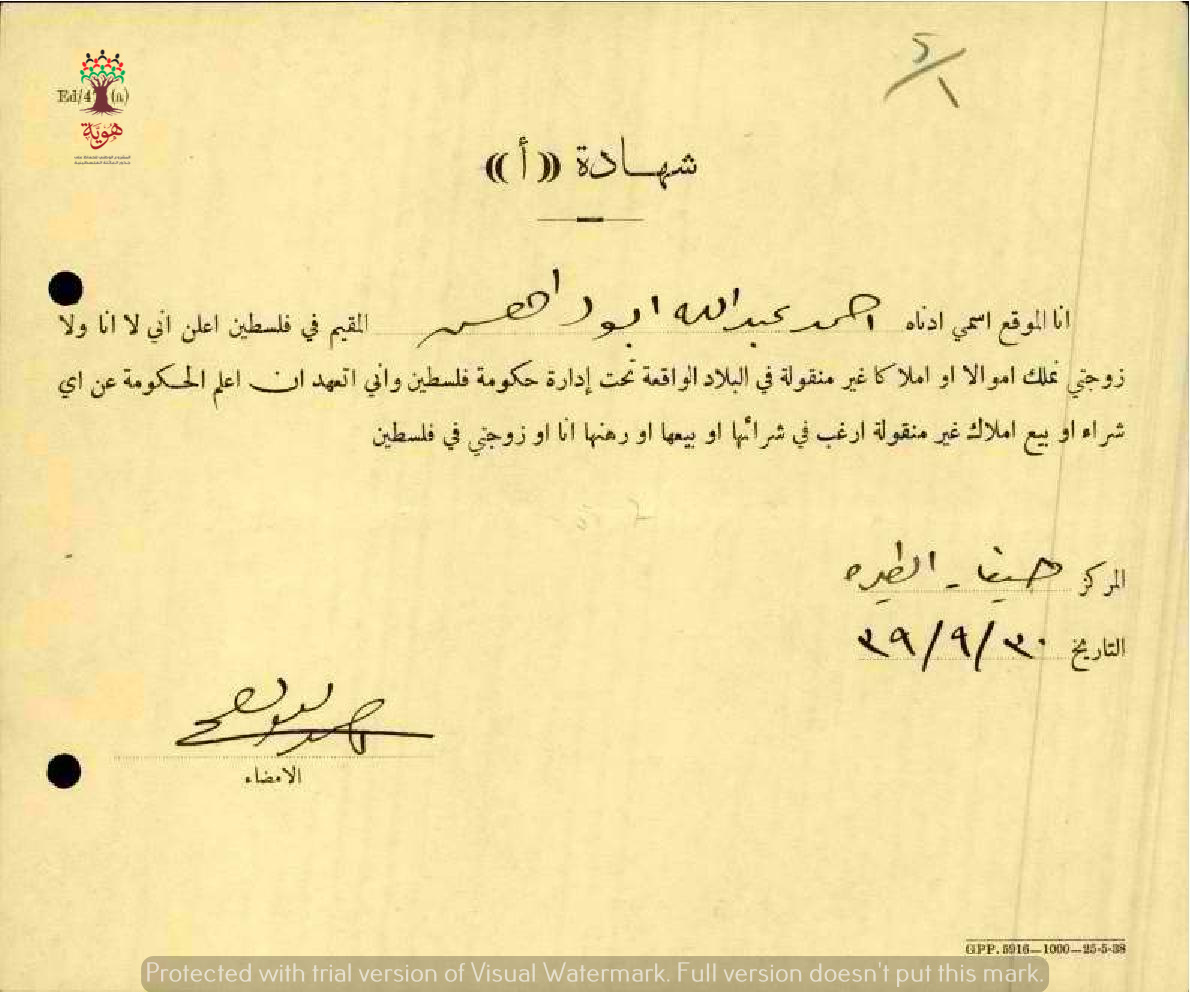 5/1
Ed/4 (a)
هوية
شهادة ((أ))
انا الموقع اسمي ادناه احمد عبدالله ابو المقيم في فلسطين اعلن اني لا انا ولا
زوجتي نملك اموالا او املاكا غير منقولة في البلاد الواقعة تحت إدارة حكومة فلسطين واني اتعهد ان اعلم الحكومة عن اي
شراء او بيع املاك غير منقولة ارغب في شرائها او بيعها او رهنها انا او زوجتي في فلسطين
المركز حيفا - الطيره
التاريخ ٣٩/٩/٣٠
الامضاء
GPP. 5916—1000—25-5-38
Protected with trial version of Visual Watermark. Full version doesn't put this mark.